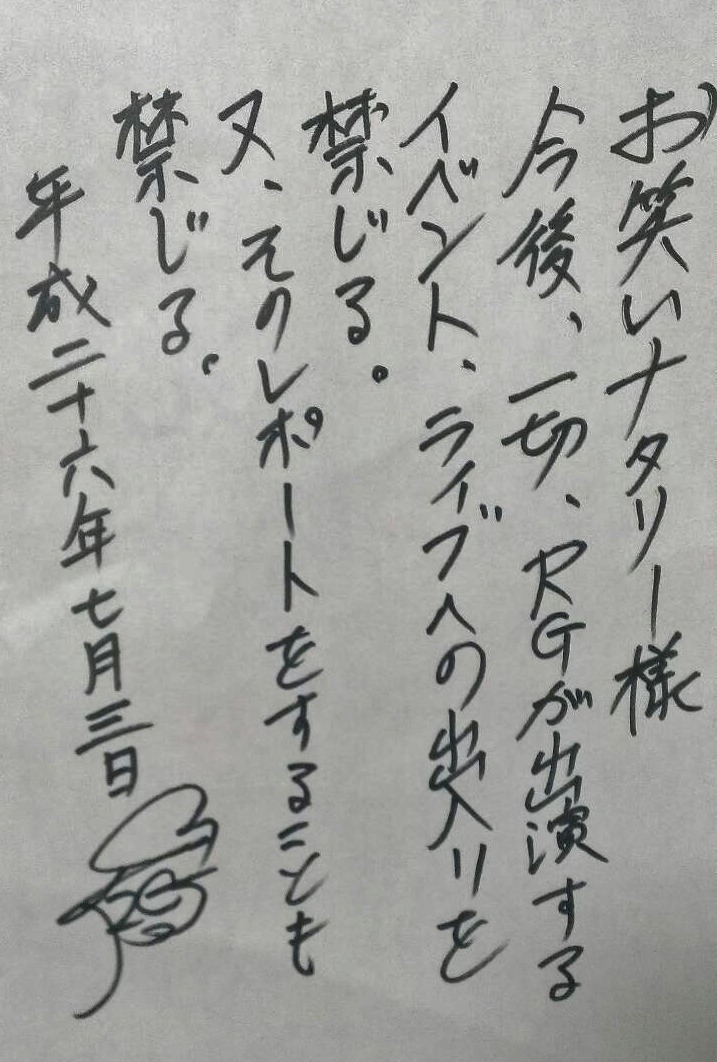 お笑いナタリー様
今後、一切、RGが出演する
イベント、ライブへの出入りを
禁じる。
又、そのレポートをすることも
禁じる。
年成二十六年七月三日